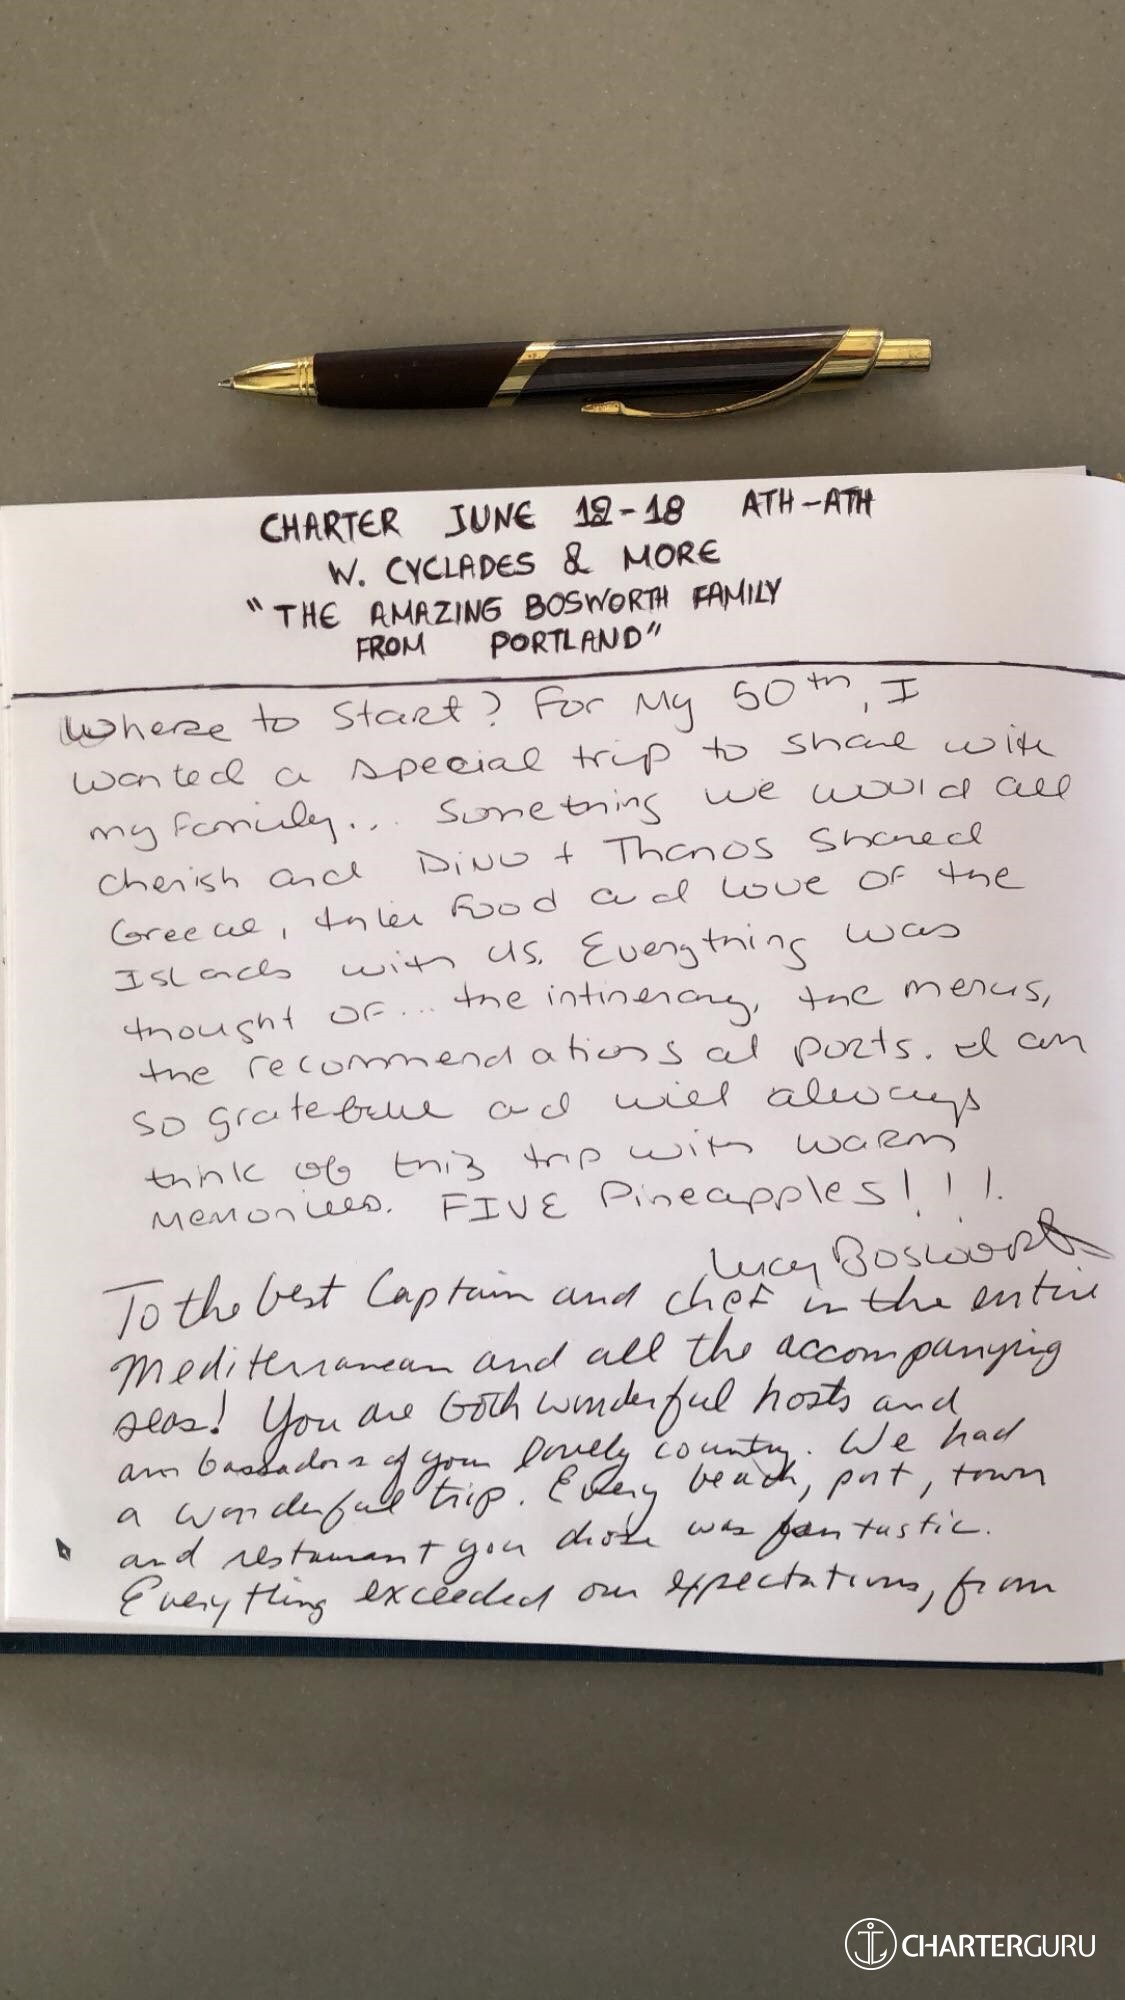 CHARTER JUNE 12-18 ATH-ATH
W. CYCLADES & MORE
"THE AMAZING BOSWORTH FAMILY
FROM PORTLAND"
Where to Start? For My 50th, I
wanted a special trip to share with
my family... Something we would all
cherish and Dino + Thanos Shared
Greece, their food and love of the
Islands with us. Everything was
thought of... the intinerary, the menus,
the recommendations at ports. I am
so grateful and will always
think of this trip with warm
Memories. FIVE Pineapples!!!
Lucy Bosworth
To the best Captain and chef in the entire
Mediterranean and all the accompanying
seas! You are both wonderful hosts and
ambassadors of your lovely country. We had
a wonderful trip. Every beach, port, town
and restaurant you chose was fantastic.
Everything exceeded our expectations, from
CHARTERGURU